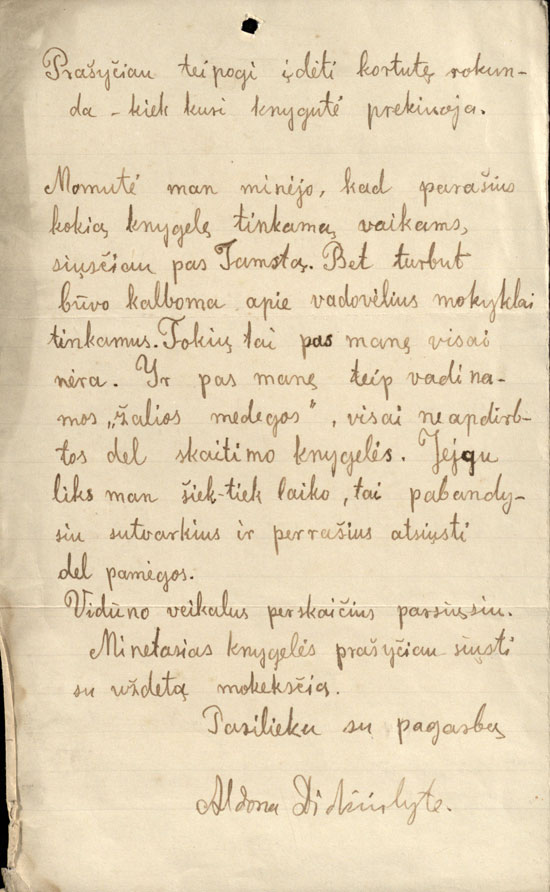 Prašyčiau teipogi įdėti kortutę rokun-
da – kiek kuri knygutė prekiuoja.
Momutė man minėjo, kad parašius
kokią knygelę tinkamą vaikams,
siųsčiau pas Tamstą. Bet turbut
būvo kalboma apie vadovėlius mokyklai
tinkamus. Tokių tai pas manę visai
nėra. Yr pas manę teip vadina-
mos „žalios medegos“, visai neapdirb-
tos del skaitimo knygelės. Jejgu
liks man šiek-tiek laiko, tai pabandy-
siu sutvarkius ir perrašius atsiųsti
del pamėgos.
Vidūno veikalus perskaičius parsiųsiu.
Minetasias knygelės prašyčiau siųsti
su uždėtą mokeksčią.
Pasilieku su pagarbą
Aldona Didžiulyte.